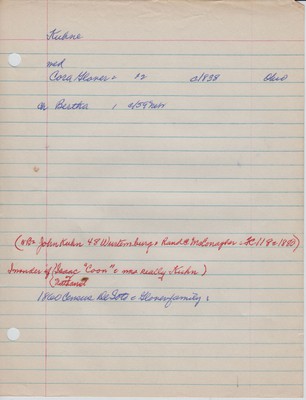 Kuhne
md
Cora Glover = 12 c/838 Ohio
ch Bertha , c/59 Nebr
(#B= John Kuhn 48 Wurtemburg = Rand & McLonagher = 1180=1850)
I wonder if (Isaac "Coon" = was really Kuhn)
1860 Census DeSoto = Glover family :